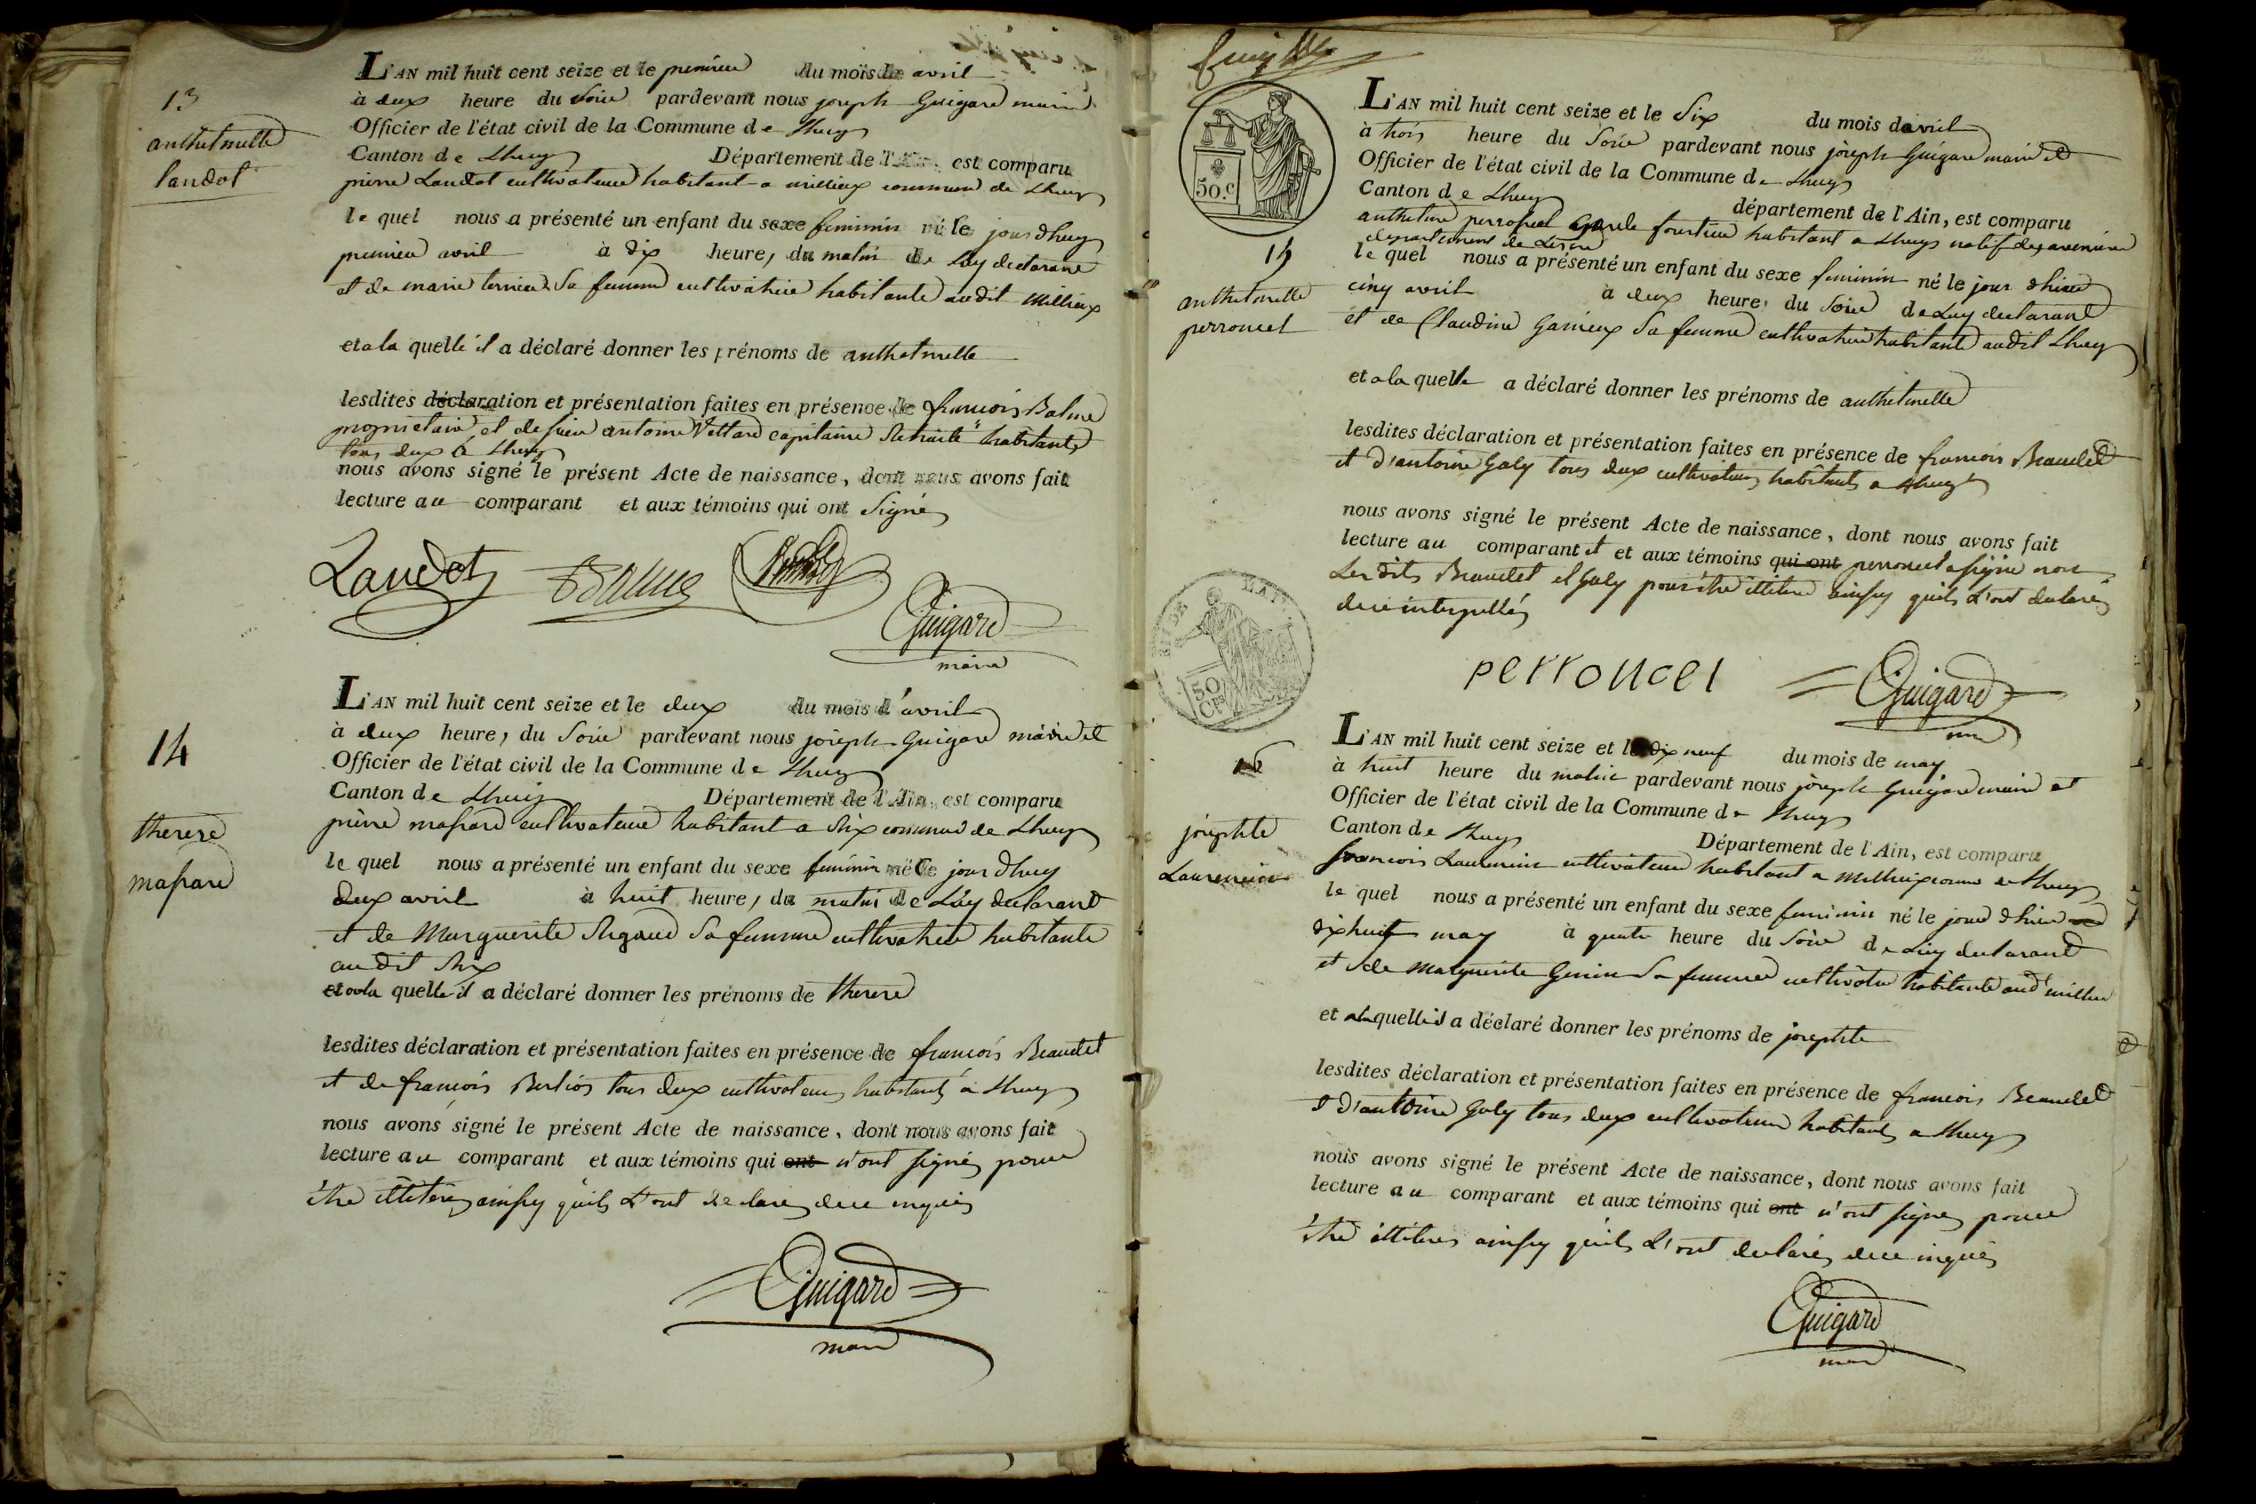 13
anthelmette
Landot
L'AN mil huit cent seize et le premier du mois de avril
à deux heure du soir pardevant nous joseph Guigard maire
Officier de l'état civil de la Commune de Lhuys
Canton de Lhuys Département de l'Ain, est comparu
pierre Landot cultivateur habitant a milliaux commune de Lhuys
le quel nous a présenté un enfant du sexe feminin né le jour dhuy
premier avril à dix heure, du matin de Luy declarant
et de marie ternier sa femme cultivatrice habitante audit Millieux
et a la quelle il a déclaré donner les prénoms de anthelmette
lesdites déclaration et présentation faites en présence de francois Balme
propriétaire et de sieur antoine Vettard capitaine Retraité habitants
tous deux à Lhuys
nous avons signé le présent Acte de naissance, dont nous avons fait
lecture au comparant et aux témoins qui ont Signé
Landot Balme
Guigard
maire
14
therese
massard
L'AN mil huit cent seize et le deux du mois d'avril
à deux heure, du soir pardevant nous joseph Guigard maire et
Officier de l'état civil de la Commune de Lhuys
Canton de Lhuys Département de l'Ain, est comparu
pierre massard cultivateur habitant a Rix commune de Lhuys
le quel nous a présenté un enfant du sexe feminin né le jour dhuy
deux avril à huit heure, du matin de Luy declarant
et de Marguerite Rigaud sa femme cultivatrice habitante
au dit Rix
et a la quelle il a déclaré donner les prénoms de therese
lesdites déclaration et présentation faites en présence de francois Beaudet
et de francois Berlios tous deux cultivateurs habitants à Lhuys
nous avons signé le présent Acte de naissance, dont nous avons fait
lecture au comparant et aux témoins qui ont n'ont signés pour
être illiterés ainsy quils L'ont declarés de ce enquis
Guigard
maire
50.c
15
anthelmette
perroncel
L'AN mil huit cent seize et le Six du mois davril
à trois heure du Soir pardevant nous joseph Guigard maire et
Officier de l'état civil de la Commune de Lhuys
Canton de Lhuys département de l'Ain, est comparu
anthelme perroncel habitant a Lhuys natif des avenieres
departement de Lisere
le quel nous a présenté un enfant du sexe feminin né le jour dhier
cinq avril à deux heure, du Soir de Luy declarant
et de Claudine Garieux sa femme cultivatrice habitante audit Lhuys
et a la quelle a déclaré donner les prénoms de anthelmette
lesdites déclaration et présentation faites en présence de francois Beaudet
et d'antoine Galy tous deux cultivateurs habitants a Lhuys
nous avons signé le présent Acte de naissance, dont nous avons fait
lecture au comparant et et aux témoins qui ont perroncel a signé non
Les dits Beaudet et Galy pour être illiteré ainsy quils L'ont declarés
de ce interpellés
50
perroncel
Guigard
16
josephte
Laurencin
L'AN mil huit cent seize et le dix neuf du mois de may
à huit heure du matin pardevant nous joseph Guigard maire et
Officier de l'état civil de la Commune de Lhuys
Canton de Lhuys Département de l'Ain, est comparu
francois Laurencin cultivateur habitant a Millieux comune de Lhuys
le quel nous a présenté un enfant du sexe feminin né le jour dhier
dixhuit may à quatre heure du Soir de Luy declarant
et de Marguerite Genin sa femme cultivatrice habitante aud millieu
et a la quelle il a déclaré donner les prénoms de josephte
lesdites déclaration et présentation faites en présence de francois Beaudet
et d'antoine Galy tous deux cultivateurs habitants a Lhuys
nous avons signé le présent Acte de naissance, dont nous avons fait
lecture au comparant et aux témoins qui ont n'ont signés pour
être illiterés ainsy quils L'ont declarés de ce enquis
Guigard
maire